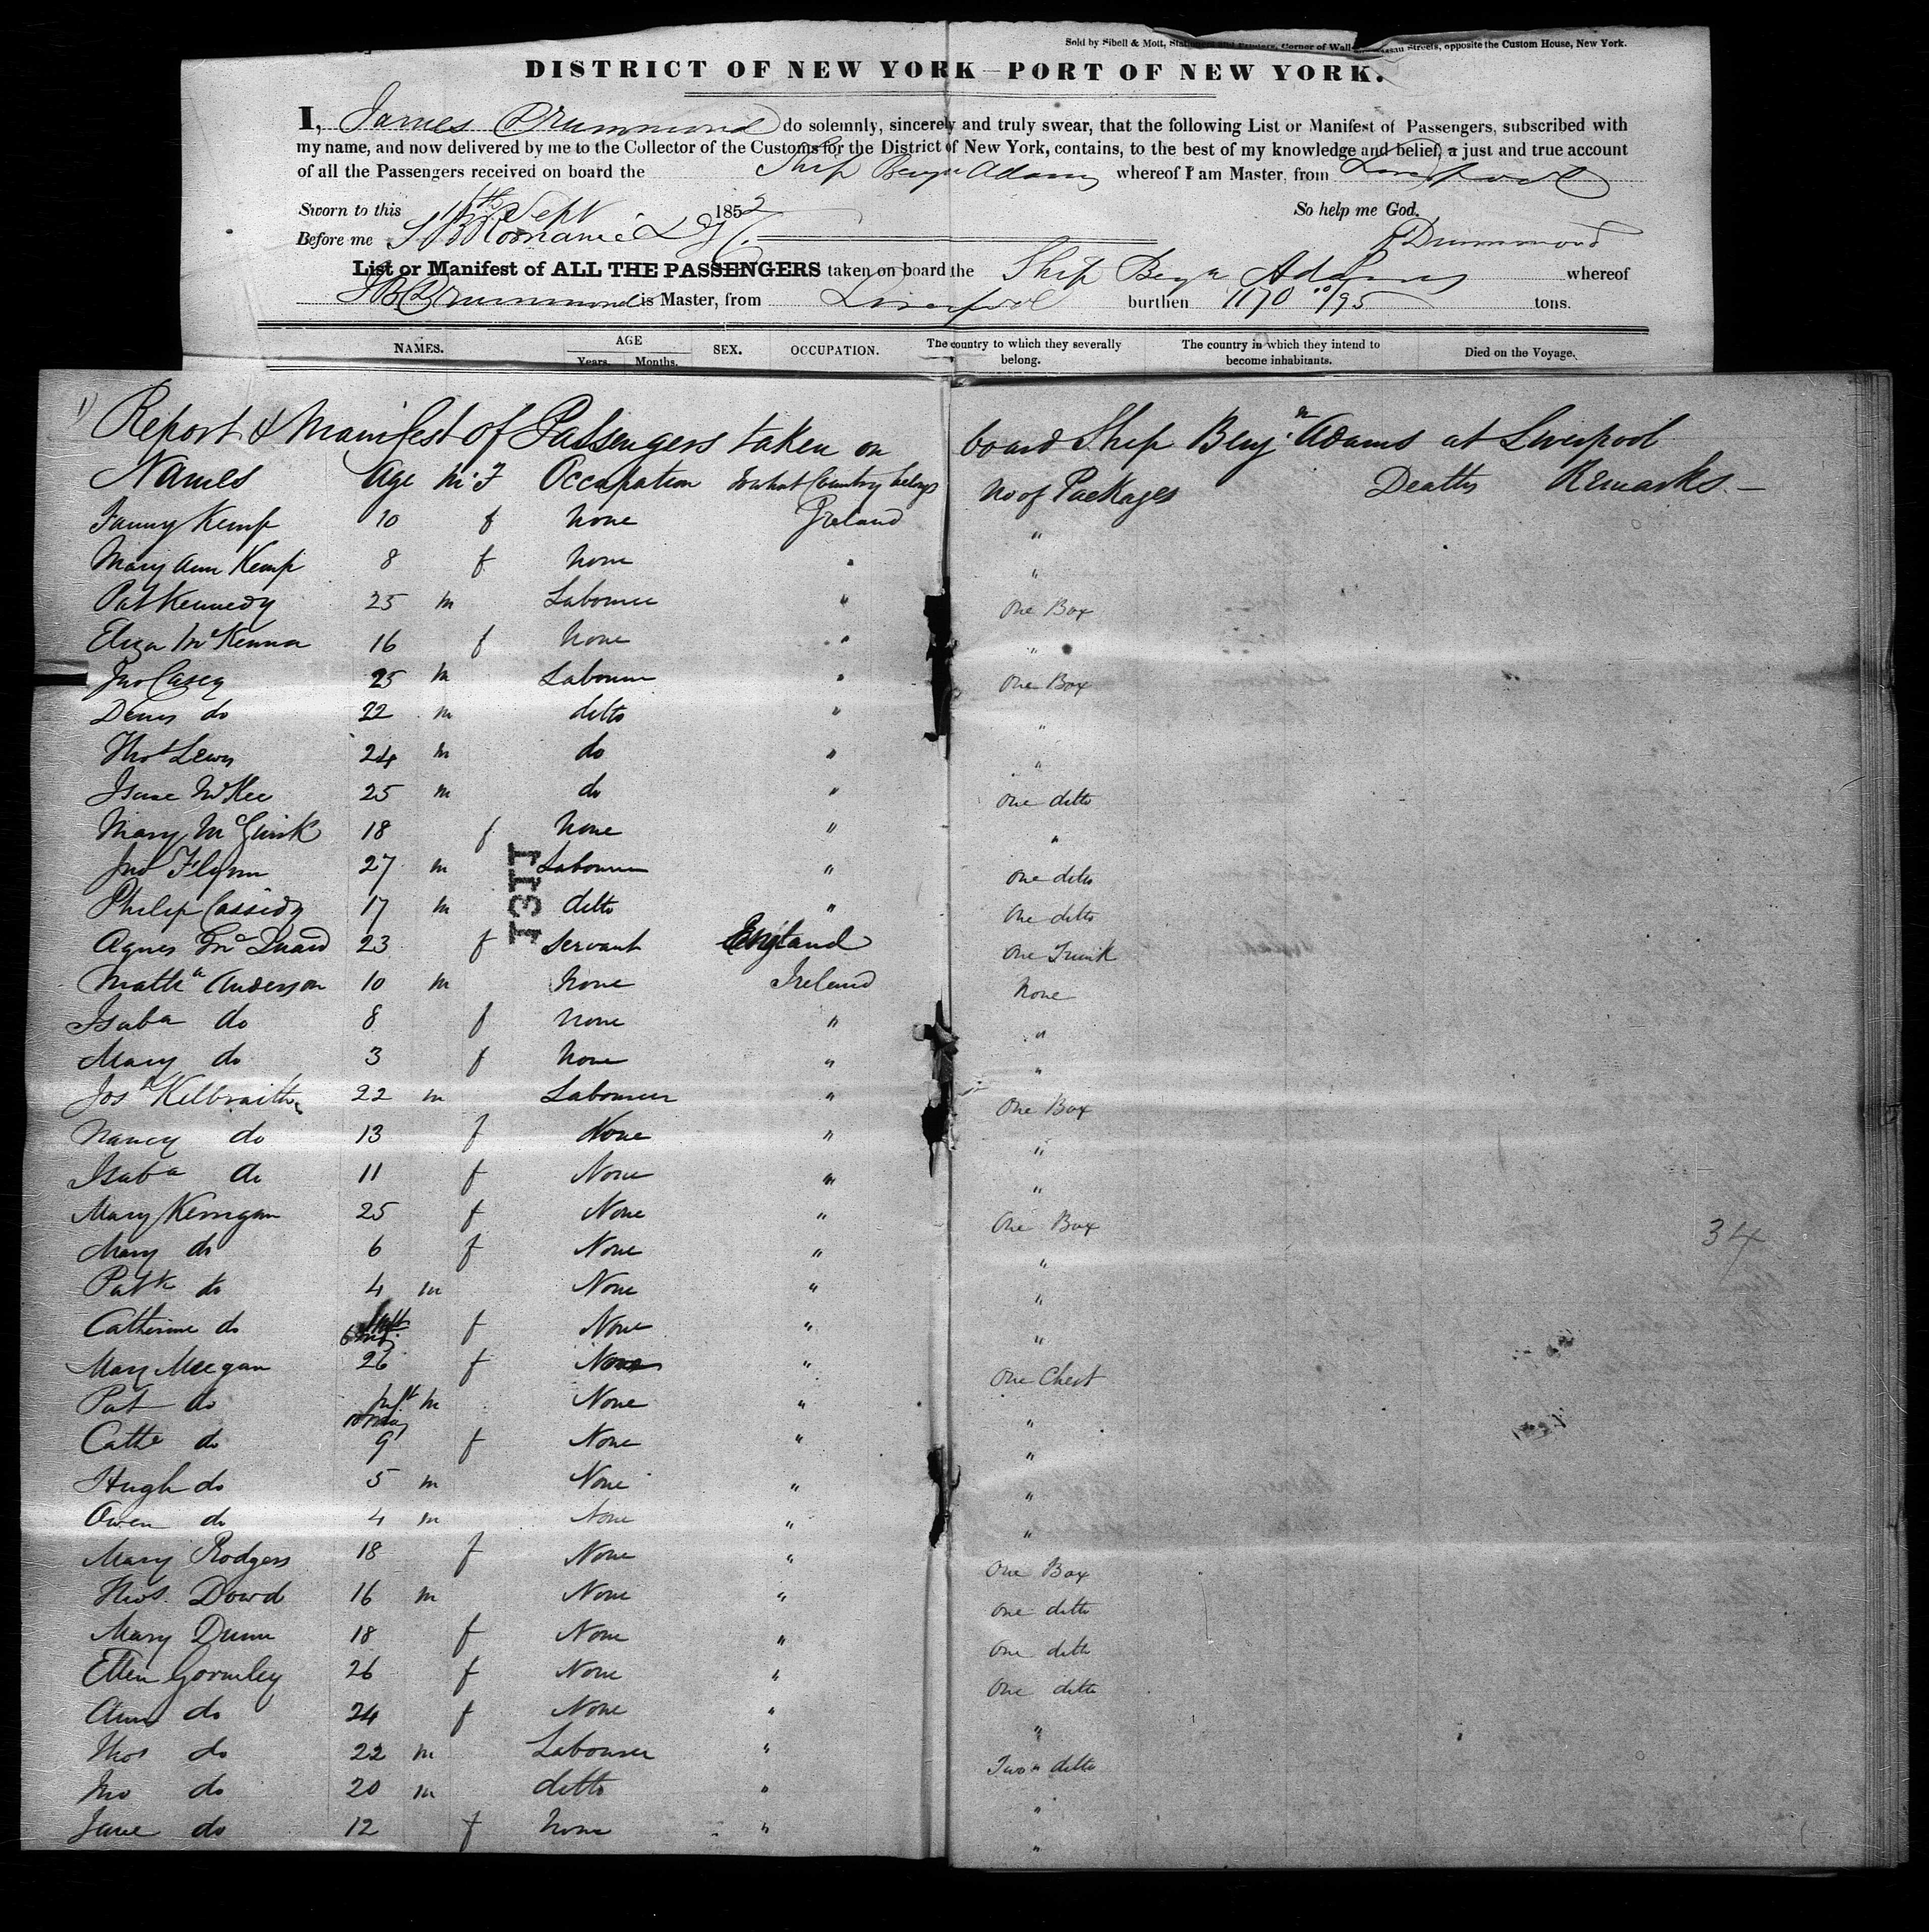 Sold by Sibell & Mott, Stationers and Printers, Corner of Wall Nassau Streets, opposite the Custom House, New York.
DISTRICT OF NEW YORK—PORT OF NEW YORK.
I, James Drummond do solemnly, sincerely and truly swear, that the following List or Manifest of Passengers, subscribed with
my name, and now delivered by me to the Collector of the Customs for the District of New York, contains, to the best of my knowledge and belief, a just and true account
of all the Passengers received on board the Ship Benjn Adams whereof I am Master, from Liverpool
Sworn to this 11th Sept 1852 So help me God.
Before me J Drummond
List or Manifest of ALL THE PASSENGERS taken on board the Ship Benjn Adams whereof
Drummond is Master, from Liverpool burthen 1170 /95 tons.
NAMES. AGE Years. Months. SEX. OCCUPATION. The country to which they severally belong. The country in which they intend to become inhabitants. Died on the Voyage.
1) Report & Manifest of Passengers taken on board Ship Benjn Adams at Liverpool
Names Age M F Occupation To what Country belongs No of Packages Deaths Remarks.—
Fanny Kemp 10 f None Ireland "
Mary Ann Kemp 8 f None " "
Pat Kennedy 25 m Labourer " One Box
Eliza McKenna 16 f None " "
Jno Casey 25 m Labourer " One Box
Denis do 22 m ditto " "
Thos Lewis 24 m do " "
Isaac McKee 25 m do " One ditto
Mary McGurk 18 f None " "
Jno Flynn 27 m Labourer " One ditto
Philip Cassidy 17 m ditto " One ditto
Agnes McQuaid 23 f Servant England One Trunk
Matha Anderson 10 m None Ireland None
Isaba do 8 f None " "
Mary do 3 f None " "
Josh Kilbraith 22 m Labourer " One Box
Nancy do 13 f None " "
Isaba do 11 f None " "
Mary Kerrigan 25 f None " One Box
34
Mary do 6 f None " "
Patk do 4 m None " "
Catherine do 6 f None " "
Mary Meegan 26 f None " One Chest
Pat do Inft m None " "
Cathe do 9 f None " "
Hugh do 5 m None " "
Owen do 4 m None " "
Mary Rodgers 18 f None " One Box
Thos. Dowd 16 m None " One ditto
Mary Dunn 18 f None " One ditto
Ellen Gormley 26 f None " One ditto
Ann do 24 f None " "
Thos do 22 m Labourer " Two " ditto
Jno do 20 m ditto " "
Jane do 12 f None " "